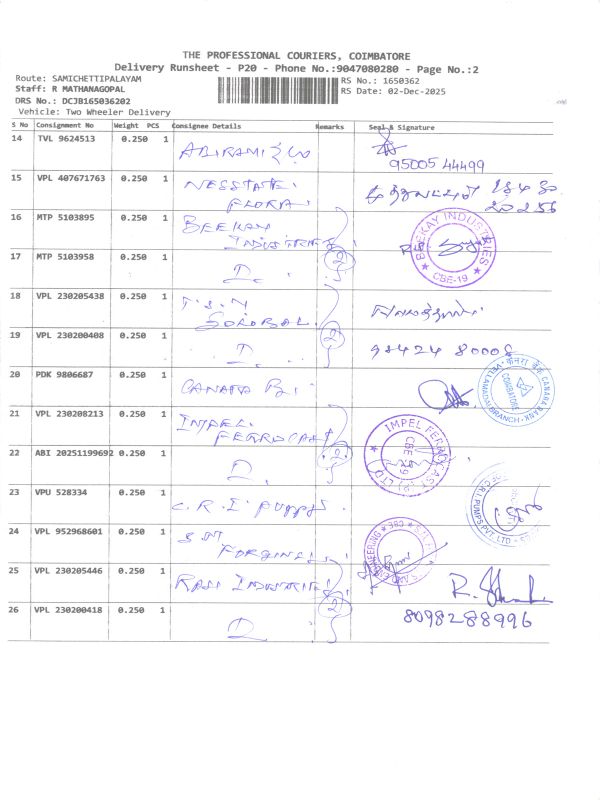 THE PROFESSIONAL COURIERS, COIMBATORE
Delivery Runsheet - P20 - Phone No.:9047080280 - Page No.:2
Route: SAMICHETTIPALAYAM
RS No.: 1650362
Staff: R MATHANAGOPAL
RS Date: 02-Dec-2025
DRS No.: DCJB165036202
Vehicle: Two Wheeler Delivery
S No Consignment No Weight PCS Consignee Details Remarks Seal & Signature
14 TVL 9624513 0.250 1 ABIRAMI
95005 44499
15 VPL 407671763 0.250 1
FLORA
16 MTP 5103895 0.250 1 BEEKAY
INDUSTRIES
BEEKAY INDUSTRIES
CBE-19
17 MTP 5103958 0.250 1 D. 2
18 VPL 230205438 0.250 1 T.S.N
19 VPL 230200408 0.250 1 D. 2
98424 80008
20 PDK 9806687 0.250 1 CANARA
CANARA BANK
COIMBATORE
BRANCH
21 VPL 230208213 0.250 1 IMPEL
FERROCAST
IMPEL FERROCAST (P) LTD
22 ABI 20251199692 0.250 1 D. 2
23 VPU 528334 0.250 1 C.R.I. PUMPS
C.R.I. PUMPS PVT. LTD
24 VPL 952968601 0.250 1 SN
FORGINGS
ENGINEERING
25 VPL 230205446 0.250 1 RAJI INDUSTRIES
26 VPL 230200418 0.250 1 D. 2
8098288996